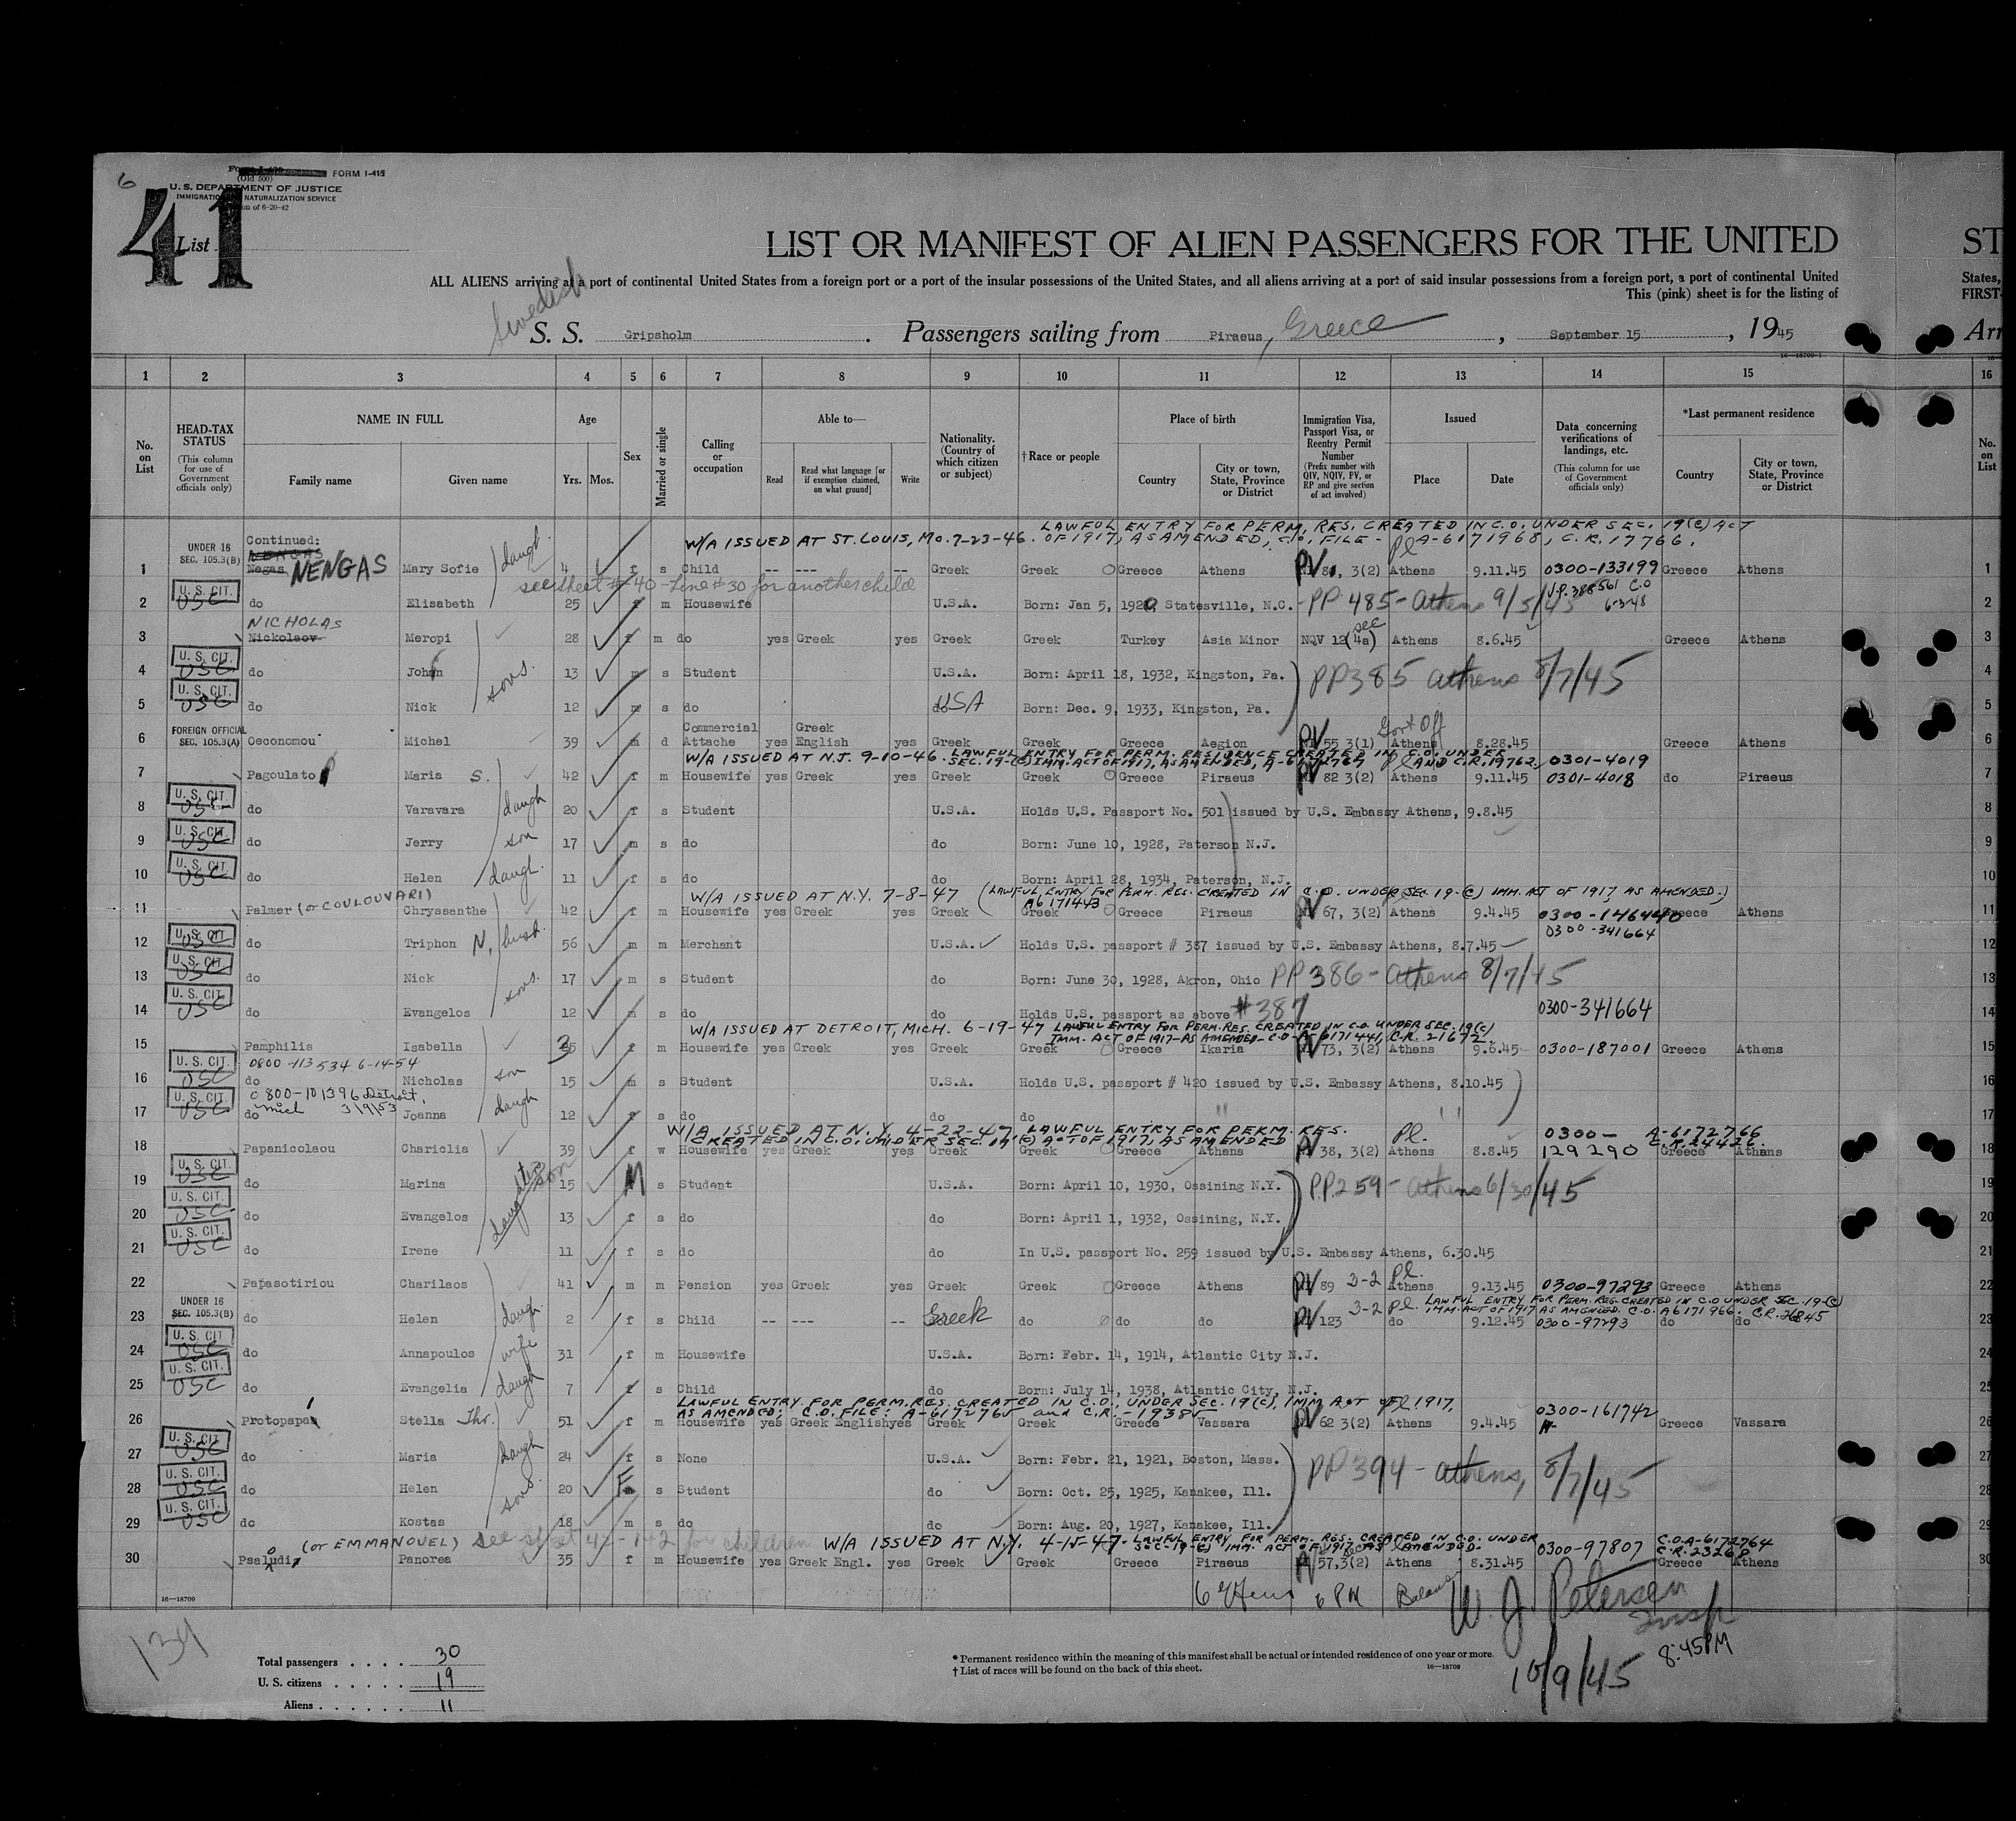 6
FORM I-415
(Old 500)
U. S. DEPARTMENT OF JUSTICE
IMMIGRATION NATURALIZATION SERVICE
on of 6-20-42
41
List
LIST OR MANIFEST OF ALIEN PASSENGERS FOR THE UNITED
ST
ALL ALIENS arriving at a port of continental United States from a foreign port or a port of the insular possessions of the United States, and all aliens arriving at a port of said insular possessions from a foreign port, a port of continental United
States,
This (pink) sheet is for the listing of
FIRST-
Swedish
S. S. Gripsholm . Passengers sailing from Piraeus, Greece , September 15 , 1945
Arr
16—18709-1
1 2 3 4 5 6 7 8 9 10 11 12 13 14 15 16
No. on List
HEAD-TAX STATUS (This column for use of Government officials only)
NAME IN FULL Family name Given name
Age Yrs. Mos.
Sex
Married or single
Calling or occupation
Able to— Read Read what language [or if exemption claimed, on what ground] Write
Nationality. (Country of which citizen or subject)
†Race or people
Place of birth Country City or town, State, Province or District
Immigration Visa, Passport Visa, or Reentry Permit Number (Prefix number with QIV, NQIV, PV, or RP and give section of act involved)
Issued Place Date
Data concerning verifications of landings, etc. (This column for use of Government officials only)
*Last permanent residence Country City or town, State, Province or District
No. on List
LAWFUL ENTRY FOR PERM. RES. CREATED IN C.O. UNDER SEC. 19(C) ACT
Continued:
W/A ISSUED AT ST. LOUIS, MO. 7-23-46. OF 1917, AS AMENDED, C.O. FILE - A-6171968, C.R. 17766.
UNDER 16 SEC. 105.3(B)
1 Negas NENGAS Mary Sofie daugh. 4 f s Child -- --- -- Greek Greek Greece Athens PV 81, 3(2) Athens 9.11.45 0300-133199 Greece Athens 1
see sheet # 40 - Line # 30 for another child
V.P. 388561 C.O
6-3-48
2 U. S. CIT. USC do Elisabeth 25 f m Housewife U.S.A. Born: Jan 5, 1920, Statesville, N.C. - PP 485 - Athens 9/5/45 2
NICHOLAS
3 Nickolaov Meropi 28 f m do yes Greek yes Greek Greek Turkey Asia Minor NQV 12(4a) sec Athens 8.6.45 Greece Athens 3
4 U. S. CIT. USC do John sons. 13 m s Student U.S.A. Born: April 18, 1932, Kingston, Pa. PP 385 Athens 8/7/45 4
5 U. S. CIT. USC do Nick 12 m s do do USA Born: Dec. 9, 1933, Kingston, Pa. 5
FOREIGN OFFICIAL SEC. 105.3(A)
6 Oeconomou Michel 39 m d Commercial Attache yes Greek English yes Greek Greek Greece Aegion PV 55 3(1) Gov't Off Athens 8.28.45 Greece Athens 6
W/A ISSUED AT N.J. 9-10-46. LAWFUL ENTRY FOR PERM. RESIDENCE CREATED IN C.O. UNDER
SEC. 19-(C) IMM. ACT OF 1917, AS AMENDED, A-6172767 AND C.R. 19762. 0301-4019
7 Pagoulato Maria S. 42 f m Housewife yes Greek yes Greek Greek Greece Piraeus PV 82 3(2) Athens 9.11.45 0301-4018 do Piraeus 7
8 U. S. CIT. USC do Varavara daugh 20 f s Student U.S.A. Holds U.S. Passport No. 501 issued by U.S. Embassy Athens, 9.8.45 8
9 U. S. CIT. USC do Jerry son 17 m s do do Born: June 10, 1928, Paterson N.J. 9
10 U. S. CIT. USC do Helen daugh. 11 f s do do Born: April 28, 1934, Paterson, N.J. 10
W/A ISSUED AT N.Y. 7-8-47 (LAWFUL ENTRY FOR PERM. RES. CREATED IN C.O. UNDER SEC. 19-(C) IMM. ACT OF 1917, AS AMENDED.)
A6171443
11 Palmer (or COULOUVARI) Chrysanthe 42 f m Housewife yes Greek yes Greek Greek Greece Piraeus 67, 3(2) Athens 9.4.45 0300-146440 Greece Athens 11
0300-341664
12 U. S. CIT. USC do Triphon N. husb. 56 m m Merchant U.S.A. Holds U.S. passport # 387 issued by U.S. Embassy Athens, 8.7.45 12
13 U. S. CIT. USC do Nick sons. 17 m s Student do Born: June 30, 1928, Akron, Ohio PP 386 - Athens 8/7/45 13
14 U. S. CIT. USC do Evangelos 12 m s do do Holds U.S. passport as above #387 0300-341664 14
W/A ISSUED AT DETROIT, MICH. 6-19-47 LAWFUL ENTRY FOR PERM. RES. CREATED IN C.O. UNDER SEC. 19(C)
IMM. ACT OF 1917-AS AMENDED-C.O-A-6171441, C.R. 21672.
15 Pamphilis Isabella 35 f m Housewife yes Greek yes Greek Greek Greece Ikaria PV 73, 3(2) Athens 9.6.45 0300-187001 Greece Athens 15
0800-113534 6-14-54
16 U. S. CIT. USC do Nicholas son 15 m s Student U.S.A. Holds U.S. passport # 420 issued by U.S. Embassy Athens, 8.10.45 16
0800-101396 Detroit, Mich 3/9/53
17 U. S. CIT. USC do Joanna daugh 12 f s do do do " " 17
W/A ISSUED AT N.Y. 4-22-47. LAWFUL ENTRY FOR PERM. RES. Pl. 0300- A-6172766
CREATED IN C.O. UNDER SEC 19(C) ACT OF 1917, AS AMENDED C.R. 24426.
18 Papanicolaou Chariclia 39 f w Housewife yes Greek yes Greek Greek Greece Athens PV 38, 3(2) Athens 8.8.45 129290 Greece Athens 18
19 U. S. CIT. USC do Marina son 15 M s Student U.S.A. Born: April 10, 1930, Ossining N.Y. PP 259 - Athens 6/30/45 19
20 U. S. CIT. USC do Evangelos daughter 13 f s do do Born: April 1, 1932, Ossining, N.Y. 20
21 U. S. CIT. USC do Irene 11 f s do do In U.S. passport No. 259 issued by U.S. Embassy Athens, 6.30.45 21
22 Papasotiriou Charilaos 41 m m Pension yes Greek yes Greek Greek Greece Athens PV 89 3-2 Pl. Athens 9.13.45 0300-97293 Greece Athens 22
UNDER 16 SEC. 105.3(B)
LAWFUL ENTRY FOR PERM. RES. CREATED IN C.O UNDER SEC. 19-(C)
IMM. ACT OF 1917 AS AMENDED. C.O. A6171966.
23 do Helen daugh. 2 f s Child -- --- -- Greek do do do PV 123 3-2 Pl. do 9.12.45 0300-97293 do do 23
24 U. S. CIT. USC do Annapoulos wife 31 f m Housewife U.S.A. Born: Febr. 14, 1914, Atlantic City N.J. 24
25 U. S. CIT. USC do Evangelia daugh 7 f s Child do Born: July 14, 1938, Atlantic City, N.J. 25
LAWFUL ENTRY FOR PERM. RES. CREATED IN C.O., UNDER SEC. 19(C), IMM ACT OF 1917,
AS AMENDED; C.O. FILE; A-6172765 and C.R. - 19385
26 Protopapas Stella Thr. 51 f m Housewife yes Greek English yes Greek Greek Greece Vassara PV 62 3(2) Athens 9.4.45 0300-161742 Greece Vassara 26
27 U. S. CIT. USC do Maria daugh 24 f s None U.S.A. Born: Febr. 21, 1921, Boston, Mass. PP 394 - Athens, 8/7/45 27
28 U. S. CIT. USC do Helen 20 F s Student do Born: Oct. 25, 1925, Kanakee, Ill. 28
29 U. S. CIT. USC do Kostas sons 18 m s do do Born: Aug. 20, 1927, Kanakee, Ill. 29
(or EMMANOUEL) see sheet 42 - 1+2 for children W/A ISSUED AT N.Y. 4-15-47. LAWFUL ENTRY FOR PERM. RES. CREATED IN C.O. UNDER C.O.A-6172764
SEC-19-(C) IMM. ACT OF 1917 AS AMENDED.
30 Psaludi Panorea 35 f m Housewife yes Greek Engl. yes Greek Greek Greece Piraeus 57,3(2) Athens 8.31.45 0300-97807 Greece Athens 30
6 PM Balance W. J. Petersen
Insp
16—18709
134
10/9/45 8:45PM
Total passengers . . . . 30
U. S. citizens . . . . . 19
Aliens . . . . . . 11
* Permanent residence within the meaning of this manifest shall be actual or intended residence of one year or more.
† List of races will be found on the back of this sheet.
16—18709